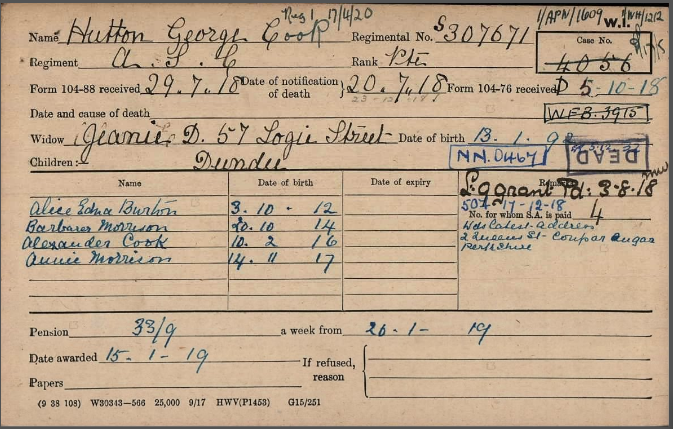 Reg 1 17/4/20 1/APN/1609 W.I. 1/WH/1212
Name Hutton George Cook Regimental No. S307671
Regiment A. S. C Rank Pte Case No. 4056
Form 104-88 received 29.7.18 Date of notification of death } 20.7.18 Form 104-76 received D 5-10-18
Date and cause of death WFB.3915
Widow Jeanie D. 57 Logie Street Date of birth 13.1.92
Children: Dundee NN.0467 DEAD
Name Date of birth Date of expiry Remarks
grant Pd: 3-8-18
Alice Edna Burton 3-10-12 17-12-18
Barbara Morrison 20.10 14 No. for whom S.A. is paid 4
Alexander Cook 10.2 16 Wds latest address
Annie Morrison 14.11 17 2 Queens St- Coupar Angus
Perthshire
Pension 33/9 a week from 20-1-19
Date awarded 15-1-19 If refused, reason
Papers
(9 38 108) W30343—566 25,000 9/17 HWV(P1453) G15/251